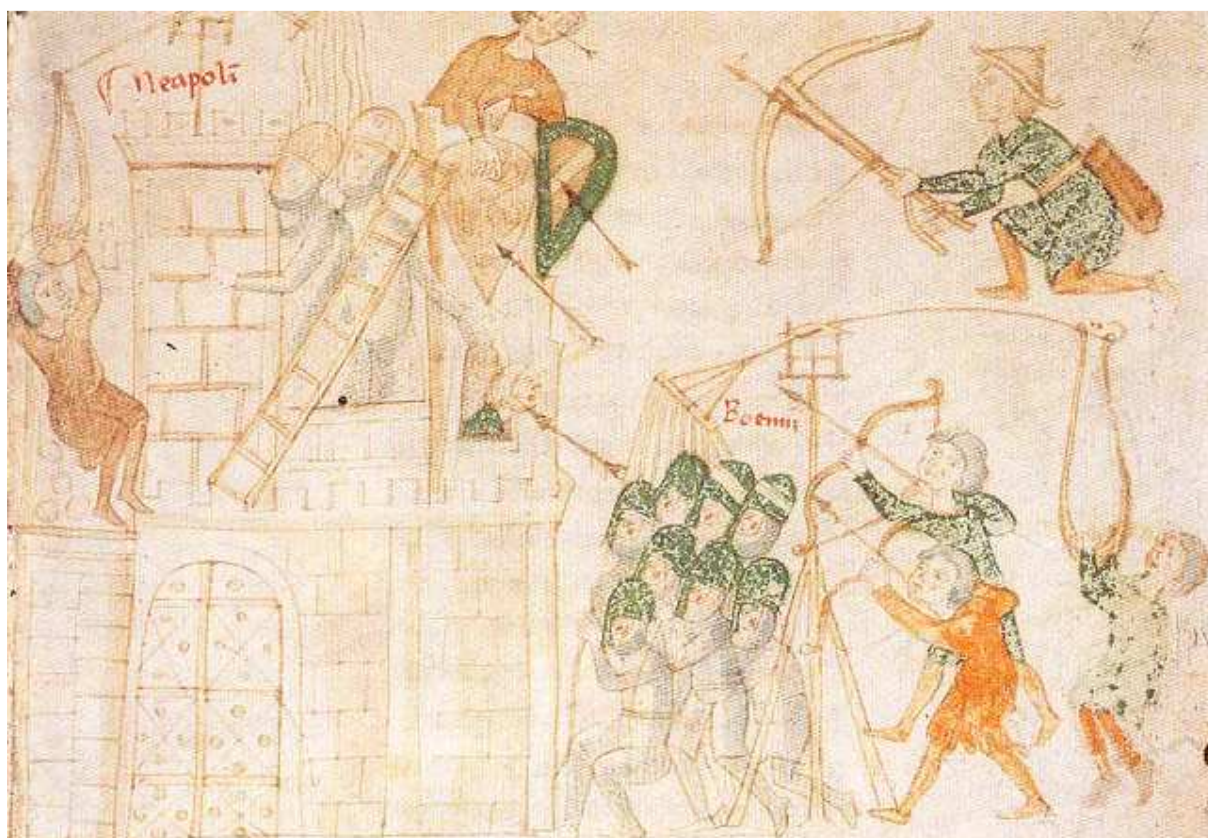 Neapolī
Boemii